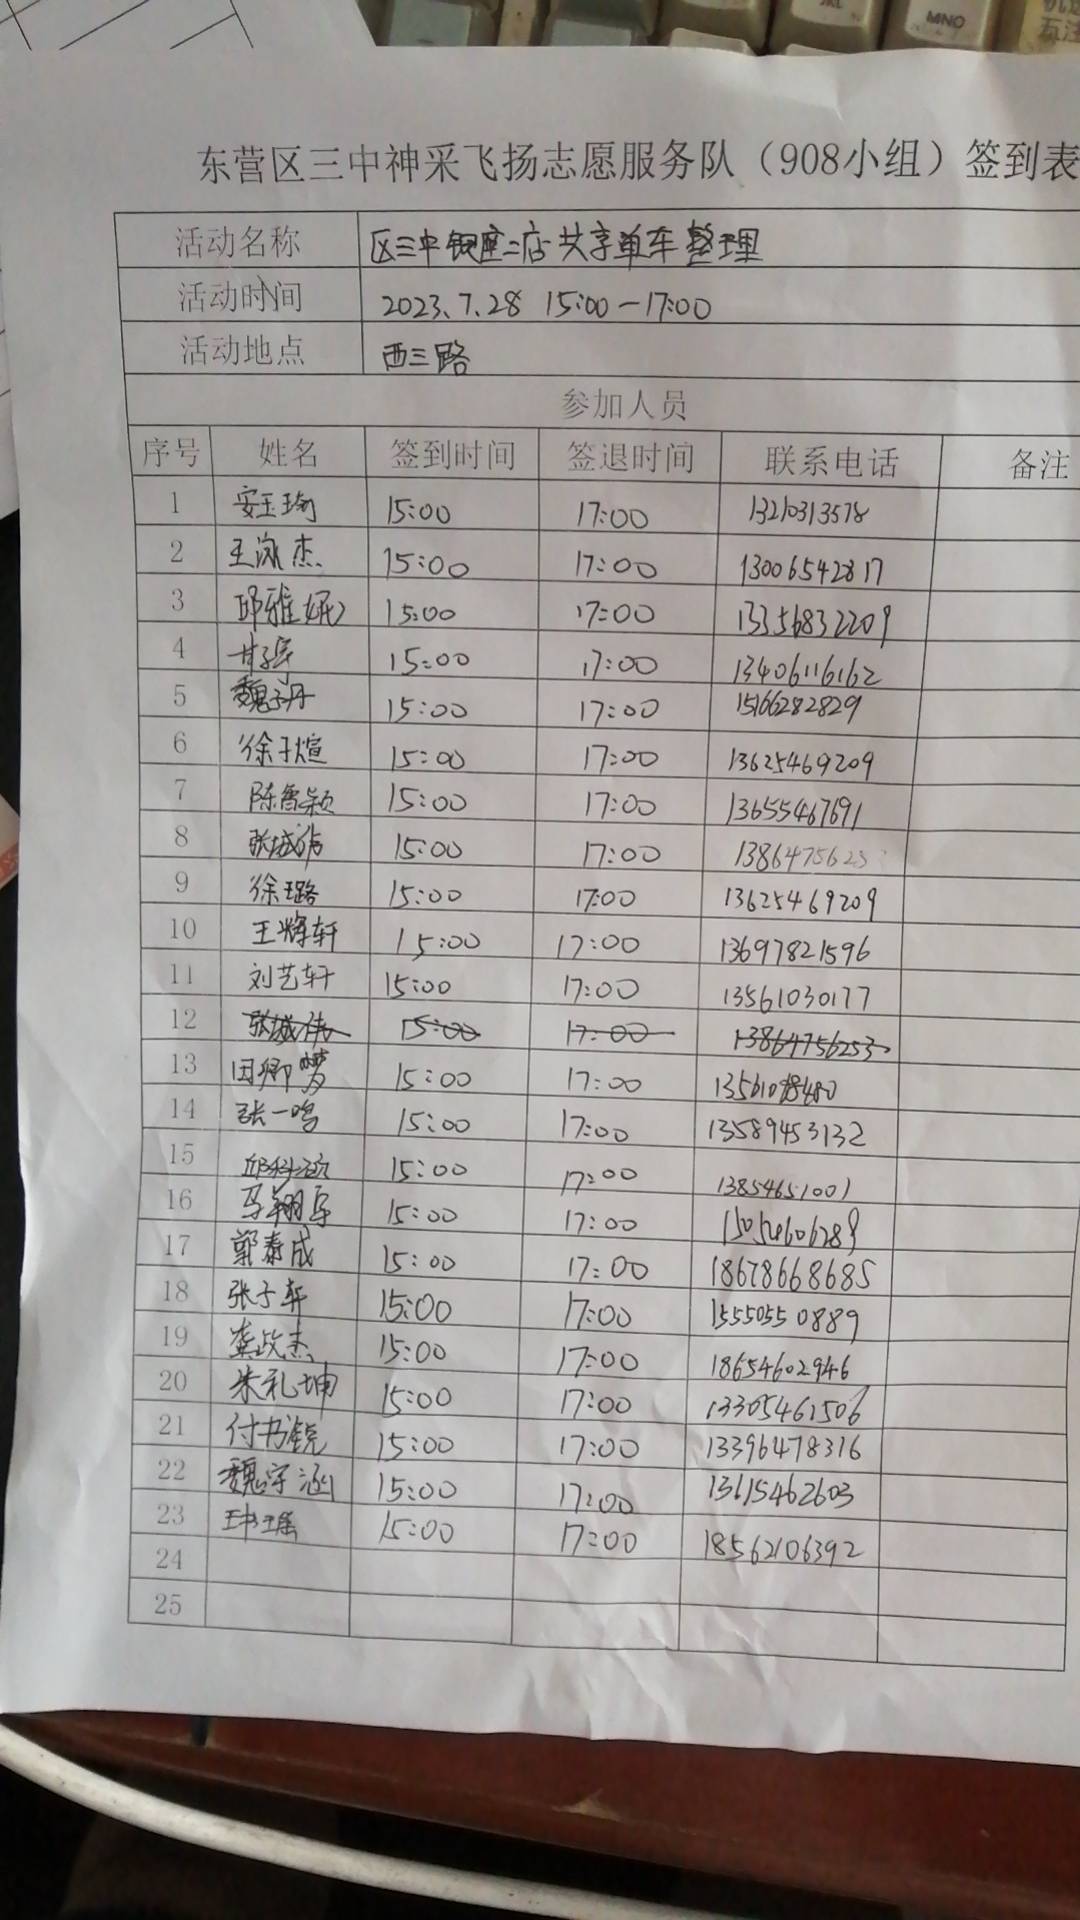 MNO
东营区三中神采飞扬志愿服务队（908小组）签到表
活动名称 区三中银座二店共享单车整理
活动时间 2023.7.28 15:00—17:00
活动地点 西三路
参加人员
序号 姓名 签到时间 签退时间 联系电话 备注
1 安玉瑜 15:00 17:00 13210313578
2 王泳杰 15:00 17:00 13006542817
3 邱雅妮 15:00 17:00 13356832209
4 15:00 17:00 13406116162
5 魏子丹 15:00 17:00 15166282829
6 徐子煊 15:00 17:00 13625469209
7 陈鲁颖 15:00 17:00 13655467691
8 张城伟 15:00 17:00 1386475625
9 徐璐 15:00 17:00 13625469209
10 王辉轩 15:00 17:00 13697821596
11 刘艺轩 15:00 17:00 13561030177
12 张城伟 15:00 17:00 13864756253
13 田卿梦 15:00 17:00
14 张一鸣 15:00 17:00 13589453132
15 15:00 17:00 13854651001
16 马翔宇 15:00 17:00 15054606289
17 郭泰成 15:00 17:00 18678668685
18 张子轩 15:00 17:00 15550550889
19 龚政杰 15:00 17:00 18654602946
20 朱礼坤 15:00 17:00 13305461506
21 付书锐 15:00 17:00 13396478316
22 魏宇涵 15:00 17:00 13615462603
23 15:00 17:00 18562106392
24
25